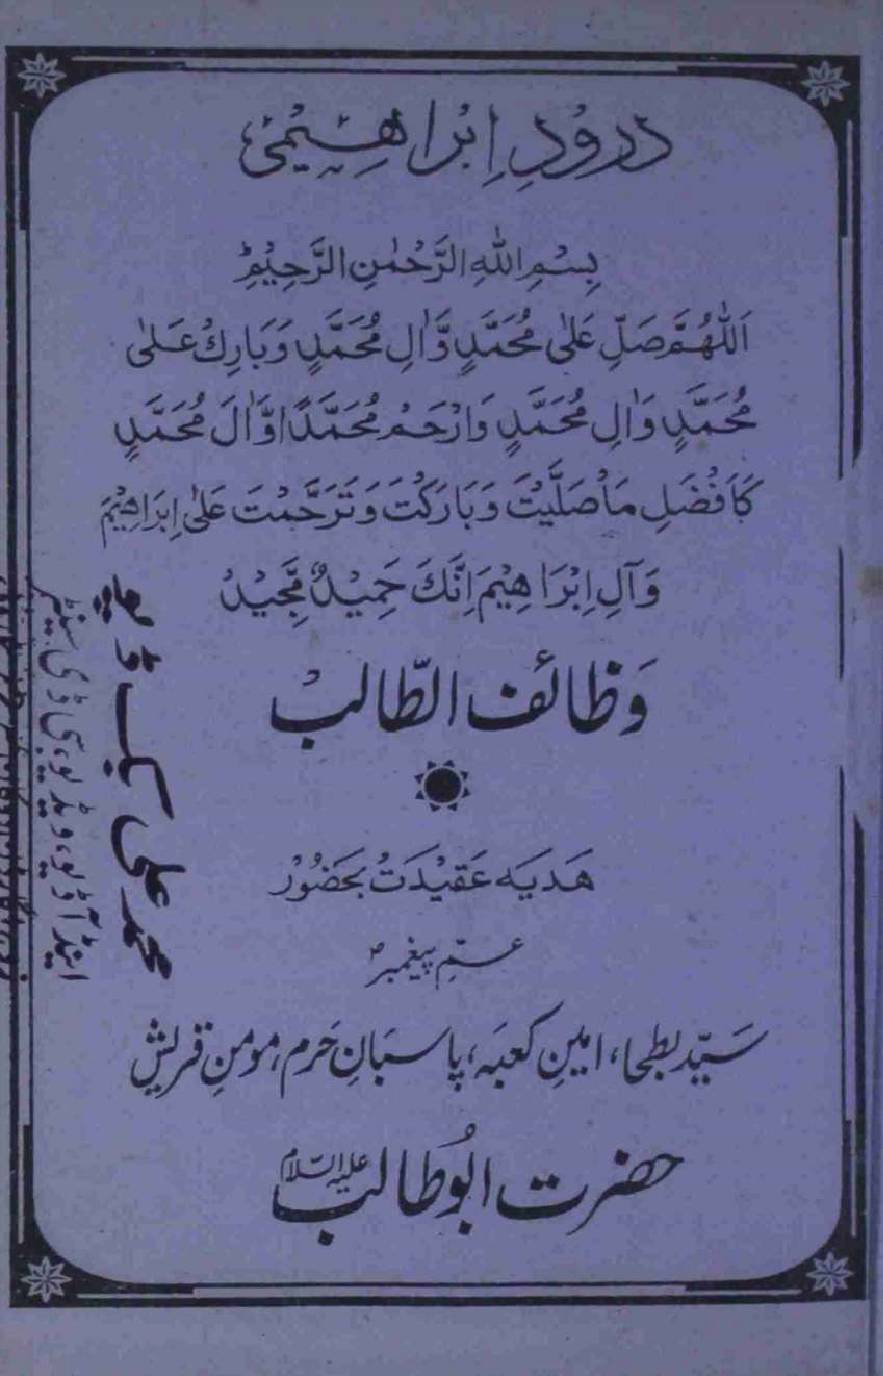 درودِ اِبْراھِیْمی
بِسْمِ اللهِ الرَّحْمٰنِ الرَّحِیْمِؕ
اَللّٰهُمَّ صَلِّ عَلٰی مُحَمَّدٍ وَّاٰلِ مُحَمَّدٍ وَبَارِكْ عَلٰی
مُحَمَّدٍ وَاٰلِ مُحَمَّدٍ وَارْحَمْ مُحَمَّدًا وَّاٰلَ مُحَمَّدٍ
كَاَفْضَلِ مَا صَلَّيْتَ وَبَارَكْتَ وَتَرَحَّمْتَ عَلٰی اِبْرَاهِيْمَ
وَآلِ اِبْرَاهِيْمَ اِنَّكَ حَمِيْدٌ مَّجِيْدٌ
وَظائف الطّالب
ھَدیَه عَقِیْدَتْ بَحَضُوْر
عسمِّ پیغمبرؐ
سَیّد بطحا، امینِ کعبَہ، پاسبَانِ حَرم، مومنِ قریش
حضرت ابُوطالب علیہ السّلام
محمد علی بک ڈپو
اینڈ آڈیو، ویڈیو، سی ڈی سنٹر